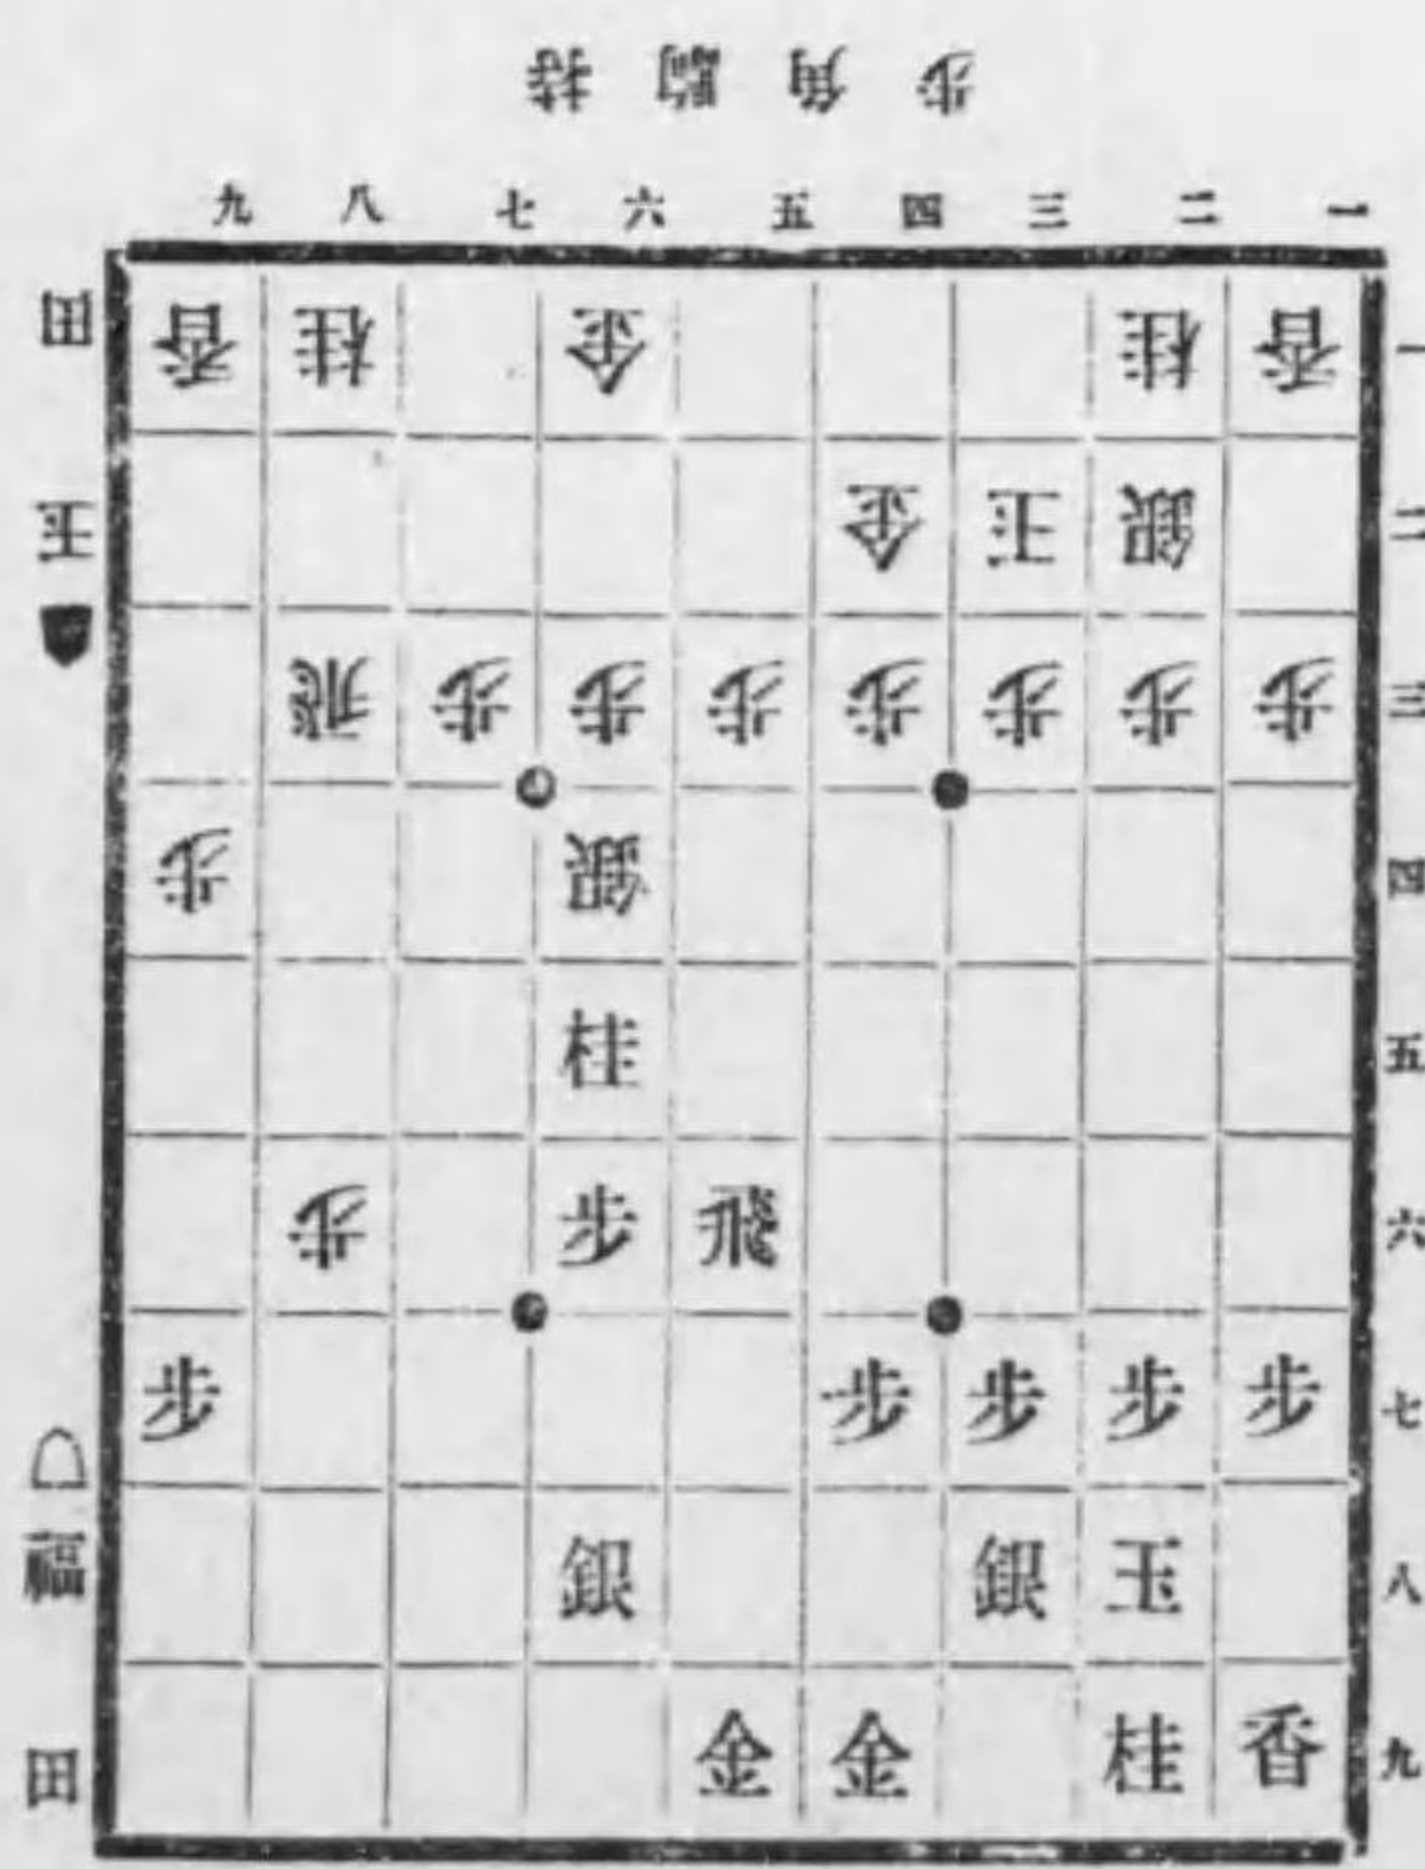 持駒角歩
九八七六五四三二一
香桂金桂香一
金玉銀二
飛歩歩歩歩歩歩歩三
歩銀四
桂五
歩歩飛六
歩歩歩歩歩七
銀銀玉八
金金桂香九
田玉
福田